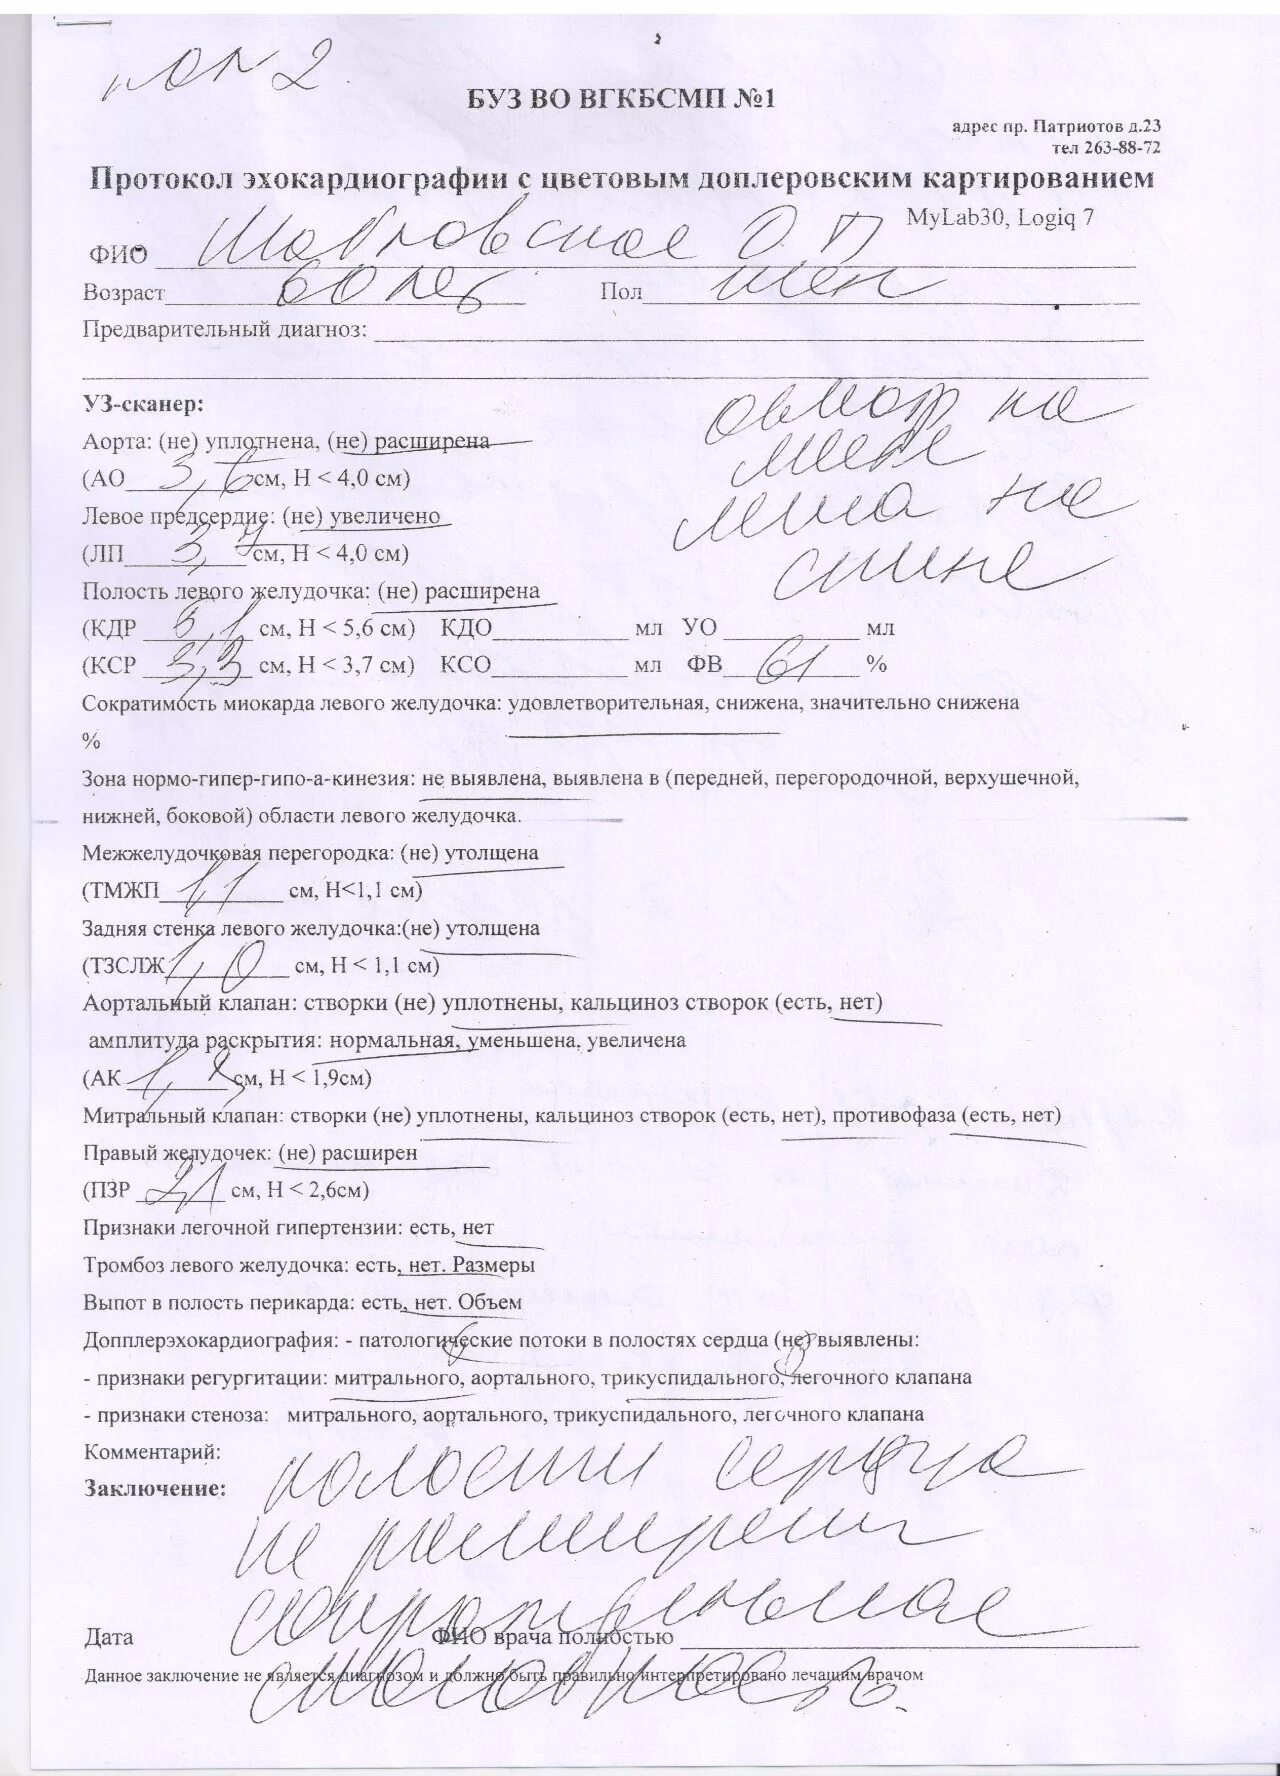 БУЗ ВО ВГКБСМП №1
адрес пр. Патриотов д.23
тел 263-88-72
Протокол эхокардиографии с цветовым доплеровским картированием
MyLab30, Logiq 7
ФИО О.П
Возраст 60 лет Пол жен
Предварительный диагноз:
УЗ-сканер:
Аорта: (не) уплотнена, (не) расширена
(АО 3,6 см, Н < 4,0 см)
Левое предсердие: (не) увеличено
(ЛП 3, см, Н < 4,0 см)
на спине
Полость левого желудочка: (не) расширена
(КДР 5,1 см, Н < 5,6 см) КДО мл УО мл
(КСР 3,3 см, Н < 3,7 см) КСО мл ФВ 61 %
Сократимость миокарда левого желудочка: удовлетворительная, снижена, значительно снижена
%
Зона нормо-гипер-гипо-а-кинезия: не выявлена, выявлена в (передней, перегородочной, верхушечной,
нижней, боковой) области левого желудочка.
Межжелудочковая перегородка: (не) утолщена
(ТМЖП 1,1 см, Н<1,1 см)
Задняя стенка левого желудочка:(не) утолщена
(ТЗСЛЖ 1,0 см, Н < 1,1 см)
Аортальный клапан: створки (не) уплотнены, кальциноз створок (есть, нет)
амплитуда раскрытия: нормальная, уменьшена, увеличена
(АК 1,8 см, Н < 1,9см)
Митральный клапан: створки (не) уплотнены, кальциноз створок (есть, нет), противофаза (есть, нет)
Правый желудочек: (не) расширен
(ПЗР 2,1 см, Н < 2,6см)
Признаки легочной гипертензии: есть, нет
Тромбоз левого желудочка: есть, нет. Размеры
Выпот в полость перикарда: есть, нет. Объем
Допплерэхокардиография: - патологические потоки в полостях сердца (не) выявлены:
- признаки регургитации: митрального, аортального, трикуспидального, легочного клапана
- признаки стеноза: митрального, аортального, трикуспидального, легочного клапана
Комментарий:
Заключение: полости сердца
не расширены
сократительная
Дата ФИО врача полностью
Данное заключение не является диагнозом и должно быть правильно интерпретировано лечащим врачом
способность.